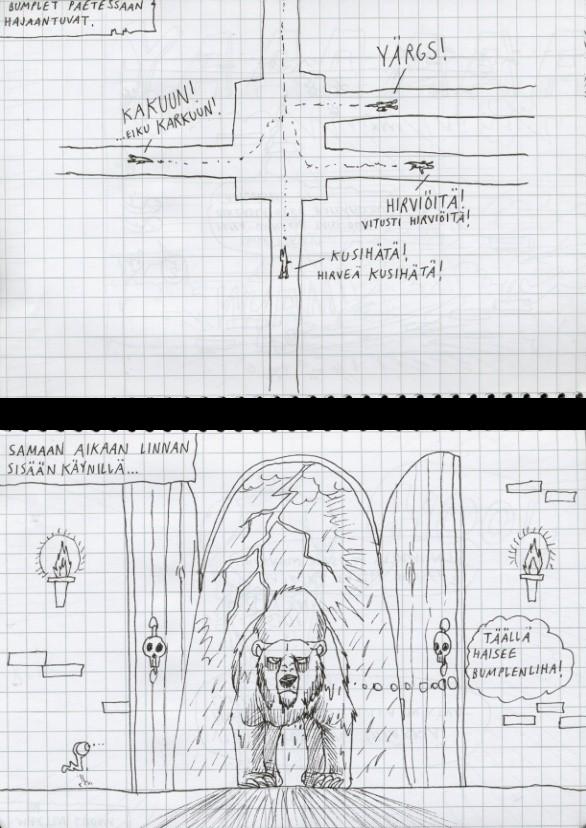 BUMPLET PAETESSAAN
HAJAANTUVAT.
YÄRGS!
KAKUUN!
...EIKU KARKUUN!
HIRVIÖITÄ!
VITUSTI HIRVIÖITÄ!
KUSIHÄTÄ!
HIRVEÄ KUSIHÄTÄ!
SAMAAN AIKAAN LINNAN
SISÄÄN KÄYNILLÄ...
TÄÄLLÄ
HAISEE
BUMPLENLIHA!